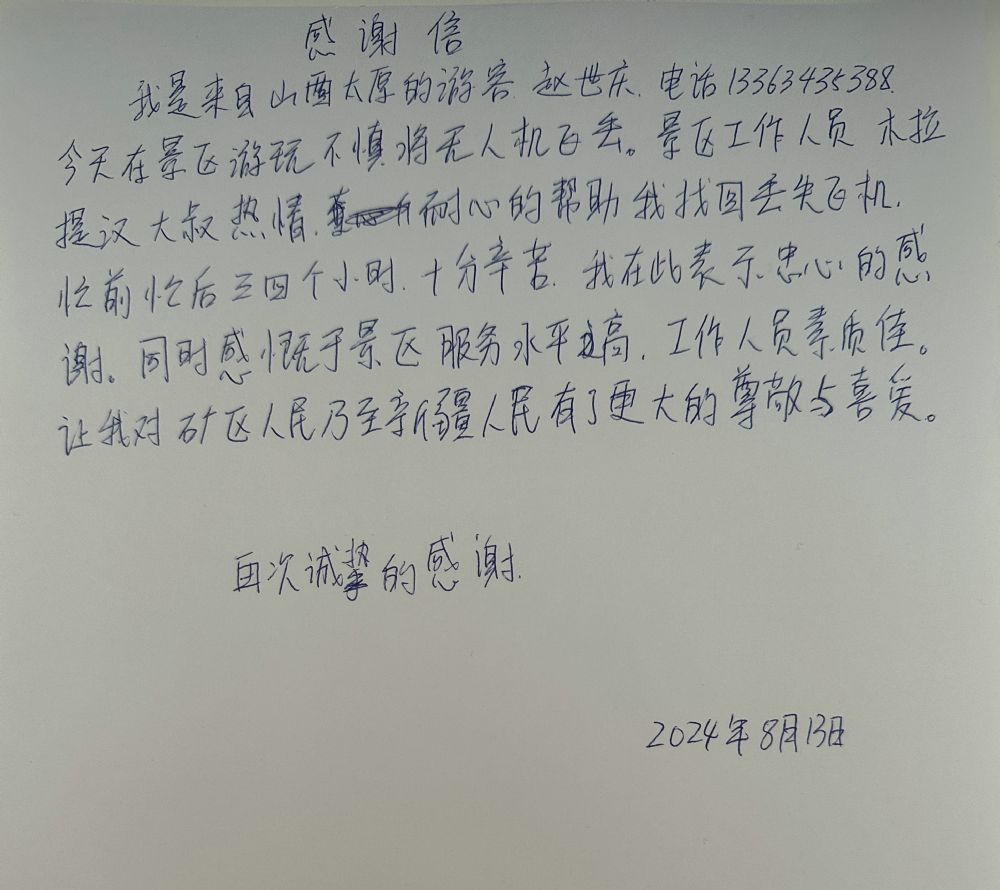 感谢信
我是来自山西太原的游客.赵世庆.电话13363435388.
今天在景区游玩不慎将无人机飞丢。景区工作人员 木拉
提汉大叔热情.耐心的帮助我找回丢失飞机.
忙前忙后三四个小时.十分辛苦.我在此表示忠心的感
谢。同时感慨于景区服务水平之高.工作人员素质佳。
让我对矿区人民乃至新疆人民有了更大的尊敬与喜爱。
再次诚挚的感谢.
2024年8月13日